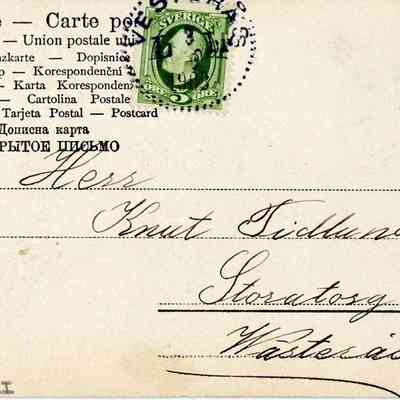 e — Carte po
- Union postale uni
zkarte — Dopisnice
p — Korespondenční
— Karta Koresponden
— Cartolina Postale
Tarjeta Postal — Postcard
Дописна карта
РЫТОЕ ПИСЬМО
SVERIGE
5 ÖRE
VESTERÅS
Herr
Knut Tidlun
Storatorg
Westerås